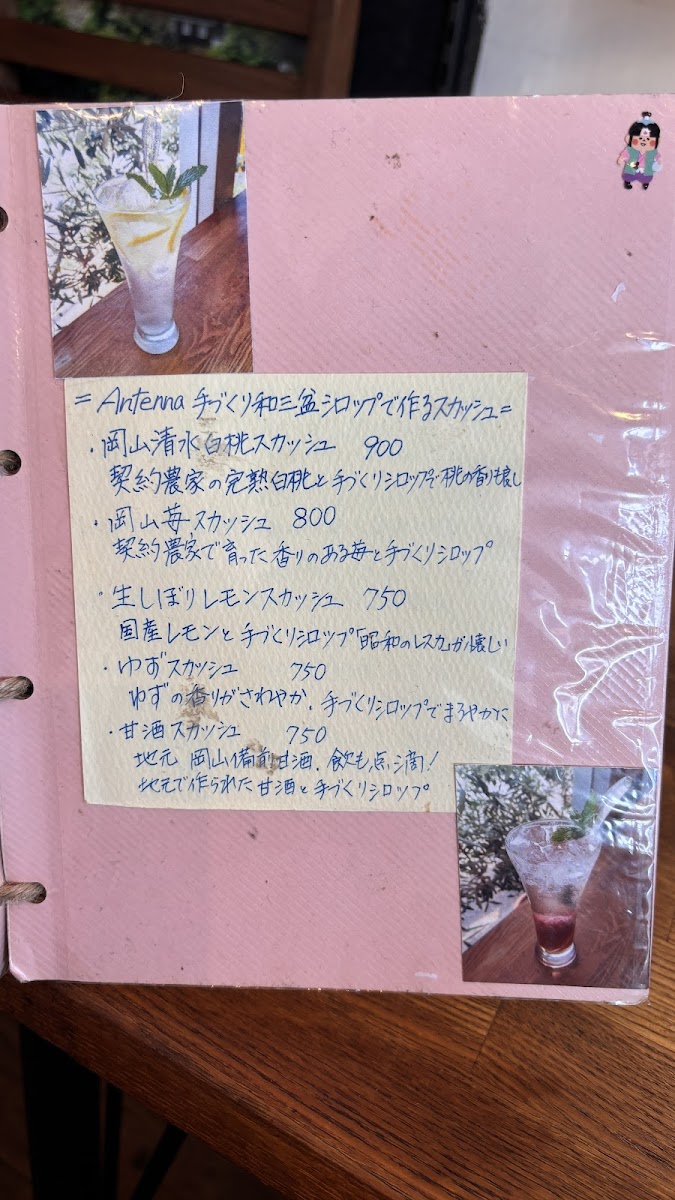 = Antenna 手づくり和三盆シロップで作るスカッシュ =
・岡山清水白桃スカッシュ 900
契約農家の完熟白桃と手づくりシロップで桃の香りも良し
・岡山苺スカッシュ 800
契約農家で育った香りのある苺と手づくりシロップ
・生しぼりレモンスカッシュ 750
国産レモンと手づくりシロップ「昭和のレスカ」が懐しい
・ゆずスカッシュ 750
ゆずの香りがさわやか、手づくりシロップでまろやかに
・甘酒スカッシュ 750
地元 岡山備前甘酒、飲む点滴!
地元で作られた甘酒と手づくりシロップ